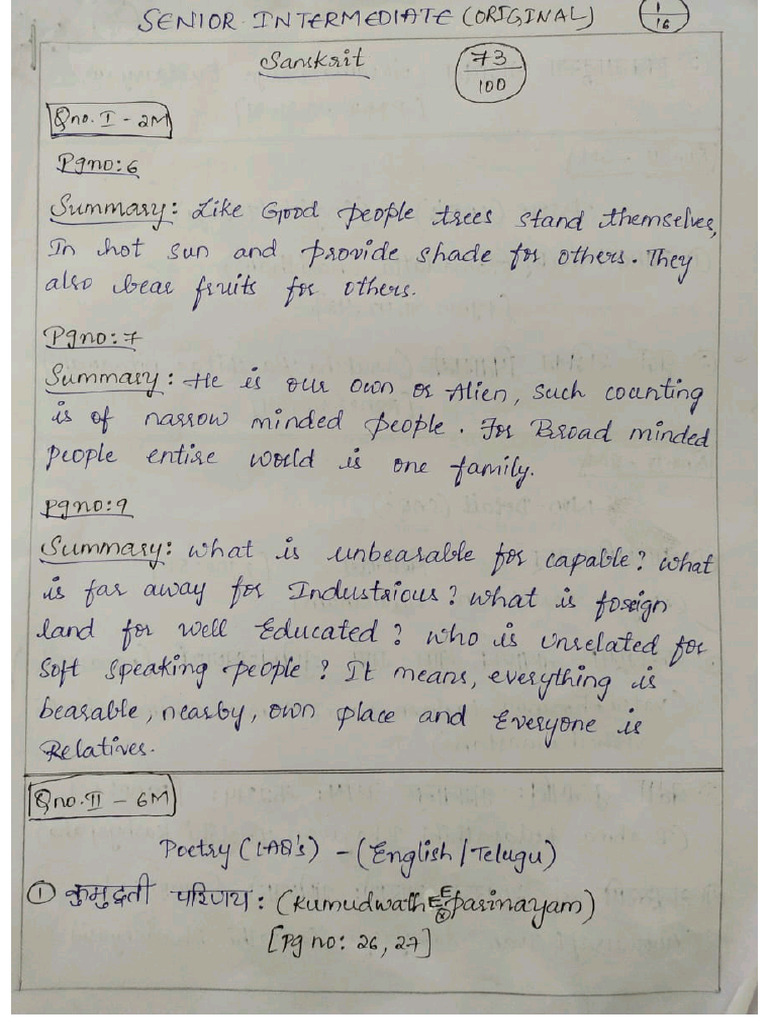 SENIOR INTERMEDIATE (ORIGINAL) 1/16
Sanskrit 73/100
Qno. I - 2M
Pgno:6
Summary: Like Good people trees stand themselves,
In hot sun and provide shade for others. They
also bear fruits for others.
Pgno:7
Summary: He is our own or Alien, such counting
is of narrow minded people. For Broad minded
people entire world is one family.
pgno:9
Summary: what is unbearable for capable? what
is far away for Industrious? what is foreign
land for well Educated? who is unrelated for
soft speaking people? It means, everything is
bearable, nearby, own place and Everyone is
Relatives.
Qno. II - 6M
Poetry (LAQ's) - (English / Telugu)
① कुमुद्वती परिणय: (Kumudwathi parinayam)
[Pg no: 26, 27]